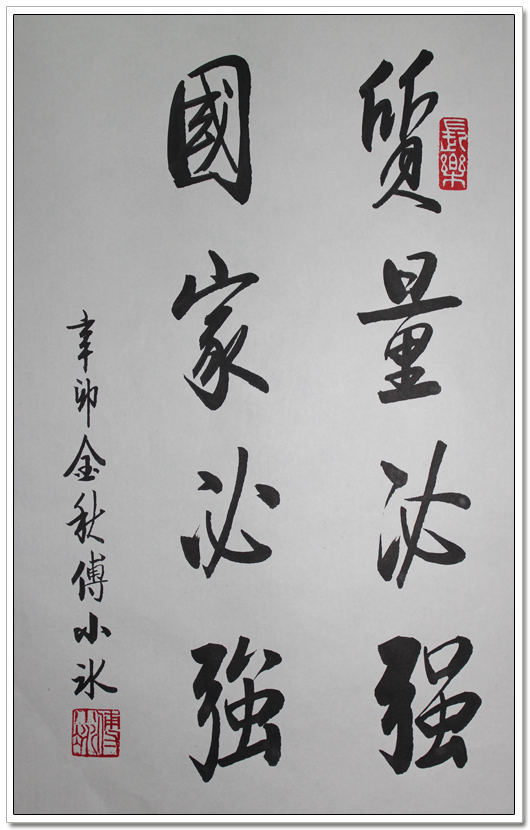 質量必强
國家必強
辛卯金秋傅小冰
長樂